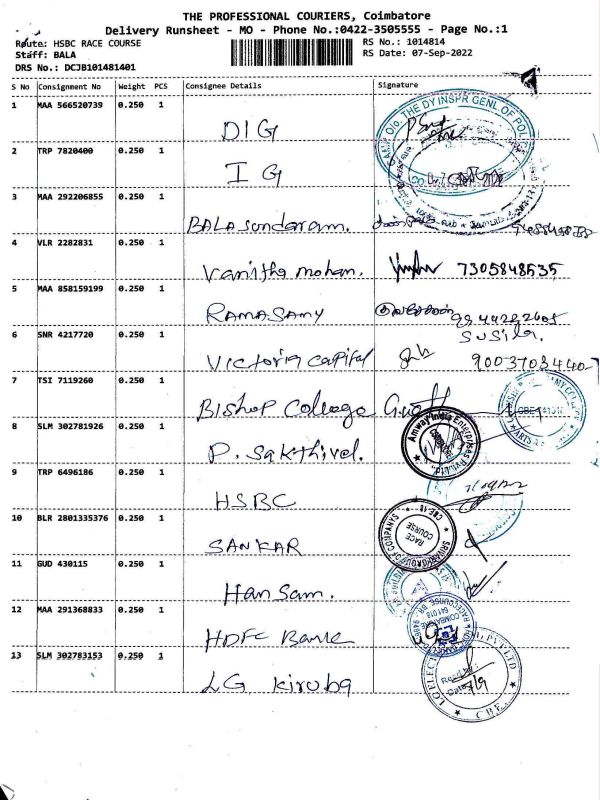 THE PROFESSIONAL COURIERS, Coimbatore
Delivery Runsheet - MO - Phone No.:0422-3505555 - Page No.:1
Route: HSBC RACE COURSE
RS No.: 1014814
Staff: BALA
RS Date: 07-Sep-2022
DRS No.: DCJB101481401
S No Consignment No Weight PCS Consignee Details Signature
1 MAA 566520739 0.250 1 DIG
O/o. THE DY INSPR GENL. OF POL
2 TRP 7820400 0.250 1 IG
3 MAA 292206855 0.250 1 BALASundaram.
4 VLR 2282831 0.250 1 Vanitha mohan. 7305848535
5 MAA 858159199 0.250 1 RAMASAMY
6 SNR 4217720 0.250 1 Victoria Capital Susila. 9003703440
7 TSI 7119260 0.250 1 Bishop College
8 SLM 302781926 0.250 1 P. Sakthivel.
Amway India Enterprises Pvt.Ltd.
9 TRP 6496186 0.250 1 HSBC
10 BLR 2801335376 0.250 1 SANKAR
RACE COURSE CBE-18
11 GUD 430115 0.250 1 Hansam.
12 MAA 291368833 0.250 1 HDFC Bank
13 SLM 302783153 0.250 1 LG Kiruba
PVT LTD CBE.